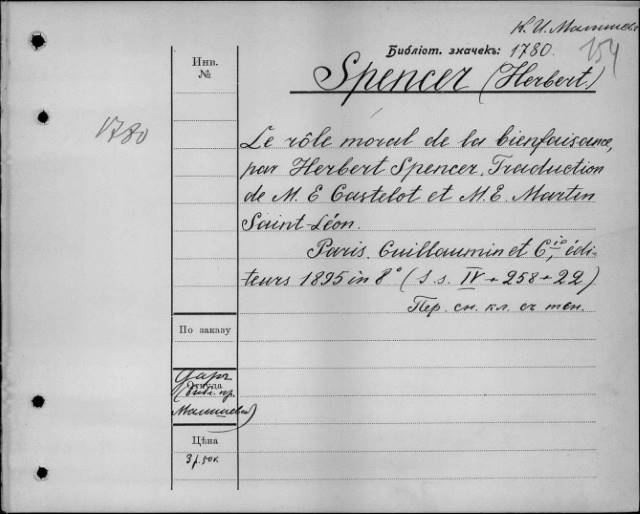 К. И. Малышев
154
Библіот. значекъ: 1780.
Spencer (Herbert)
Инв.
№
1780
Le rôle moral de la bienfaisance,
par Herbert Spencer. Traduction
de M. E Castelot et M. E. Martin
Saint-Léon.
Paris. Guillaumin et Cie, édi-
teurs 1895 in 8° (S. s. IV + 258 + 22)
Пер. сн. кл. съ тен.
По заказу
Даръ
Откуда
(библ. пр.
Малышева)
Цѣна
3 р. 50 к.